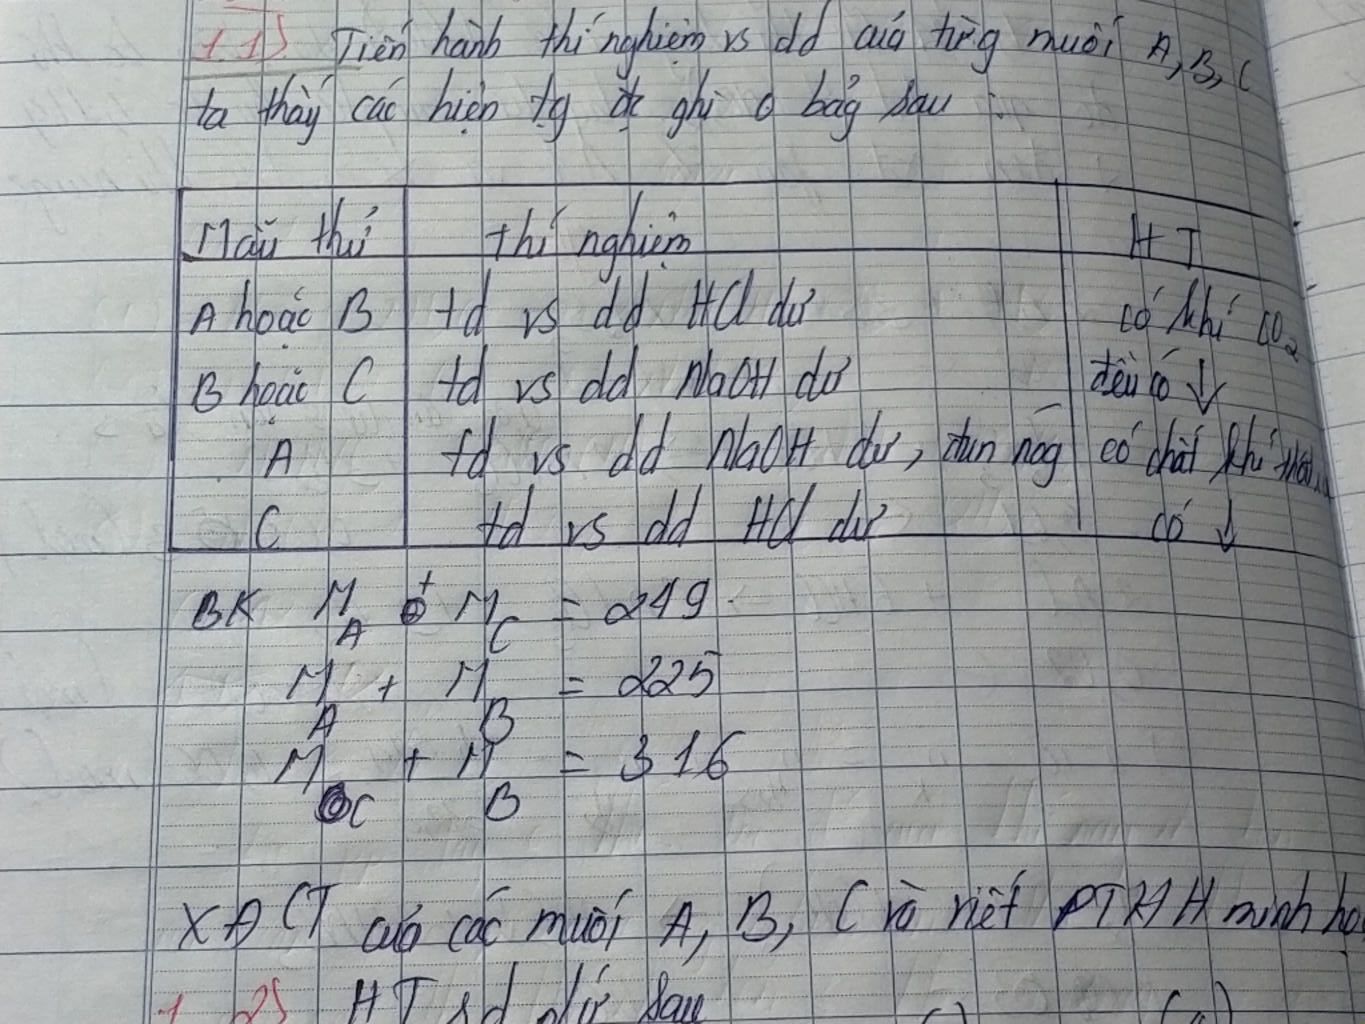 1.1) Tiến hành thí nghiệm vs dd của từg muối A, B, C
ta thấy các hiện tg đc ghi ở bảg sau :
Mẫu thử thí nghiệm HT
A hoặc B td vs dd HCl dư có khí CO2
B hoặc C td vs dd NaOH dư đều có ↓
A td vs dd NaOH dư, đun nóg có chất khí
C td vs dd HCl dư có ↓
BK M_A + M_C = 249
M_A + M_B = 225
M_C + M_B = 316
XĐ CT của các muối A, B, C và viết PTHH minh họa
1. 2) HT sđ dư sau